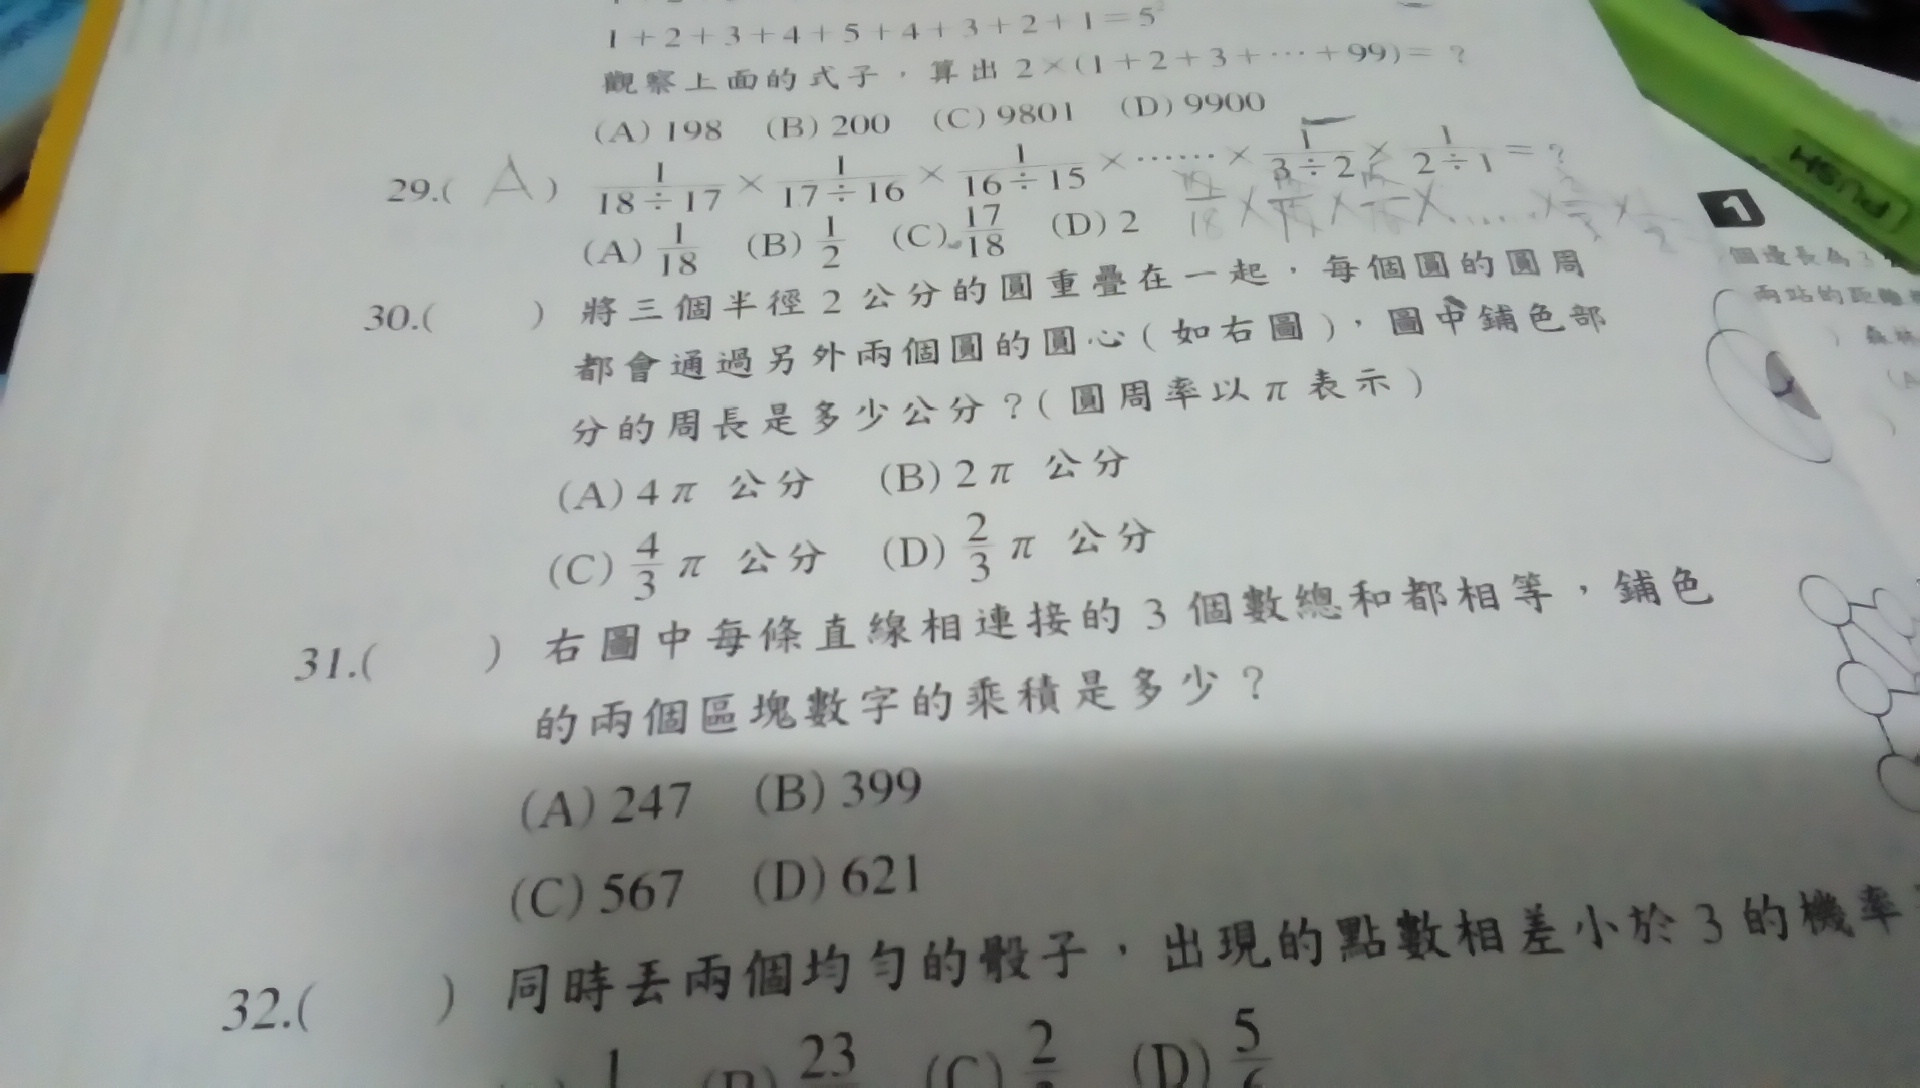 1+2+3+4+5+4+3+2+1=5²
觀察上面的式子，算出 2×(1+2+3+…+99)=？
(A) 198 (B) 200 (C) 9801 (D) 9900
29.( A ) 1/(18÷17) × 1/(17÷16) × 1/(16÷15) × …… × 1/(3÷2) × 1/(2÷1) = ？
(A) 1/18 (B) 1/2 (C) 17/18 (D) 2
30.( ) 將三個半徑 2 公分的圓重疊在一起，每個圓的圓周
都會通過另外兩個圓的圓心(如右圖)，圖中鋪色部
分的周長是多少公分？(圓周率以 π 表示)
(A) 4π 公分 (B) 2π 公分
(C) 4/3 π 公分 (D) 2/3 π 公分
31.( ) 右圖中每條直線相連接的 3 個數總和都相等，鋪色
的兩個區塊數字的乘積是多少？
(A) 247 (B) 399
(C) 567 (D) 621
32.( ) 同時丟兩個均勻的骰子，出現的點數相差小於 3 的機率
1 23 (C) 2 (D) 5
PUSH
1
個邊長為 3
兩站的距離